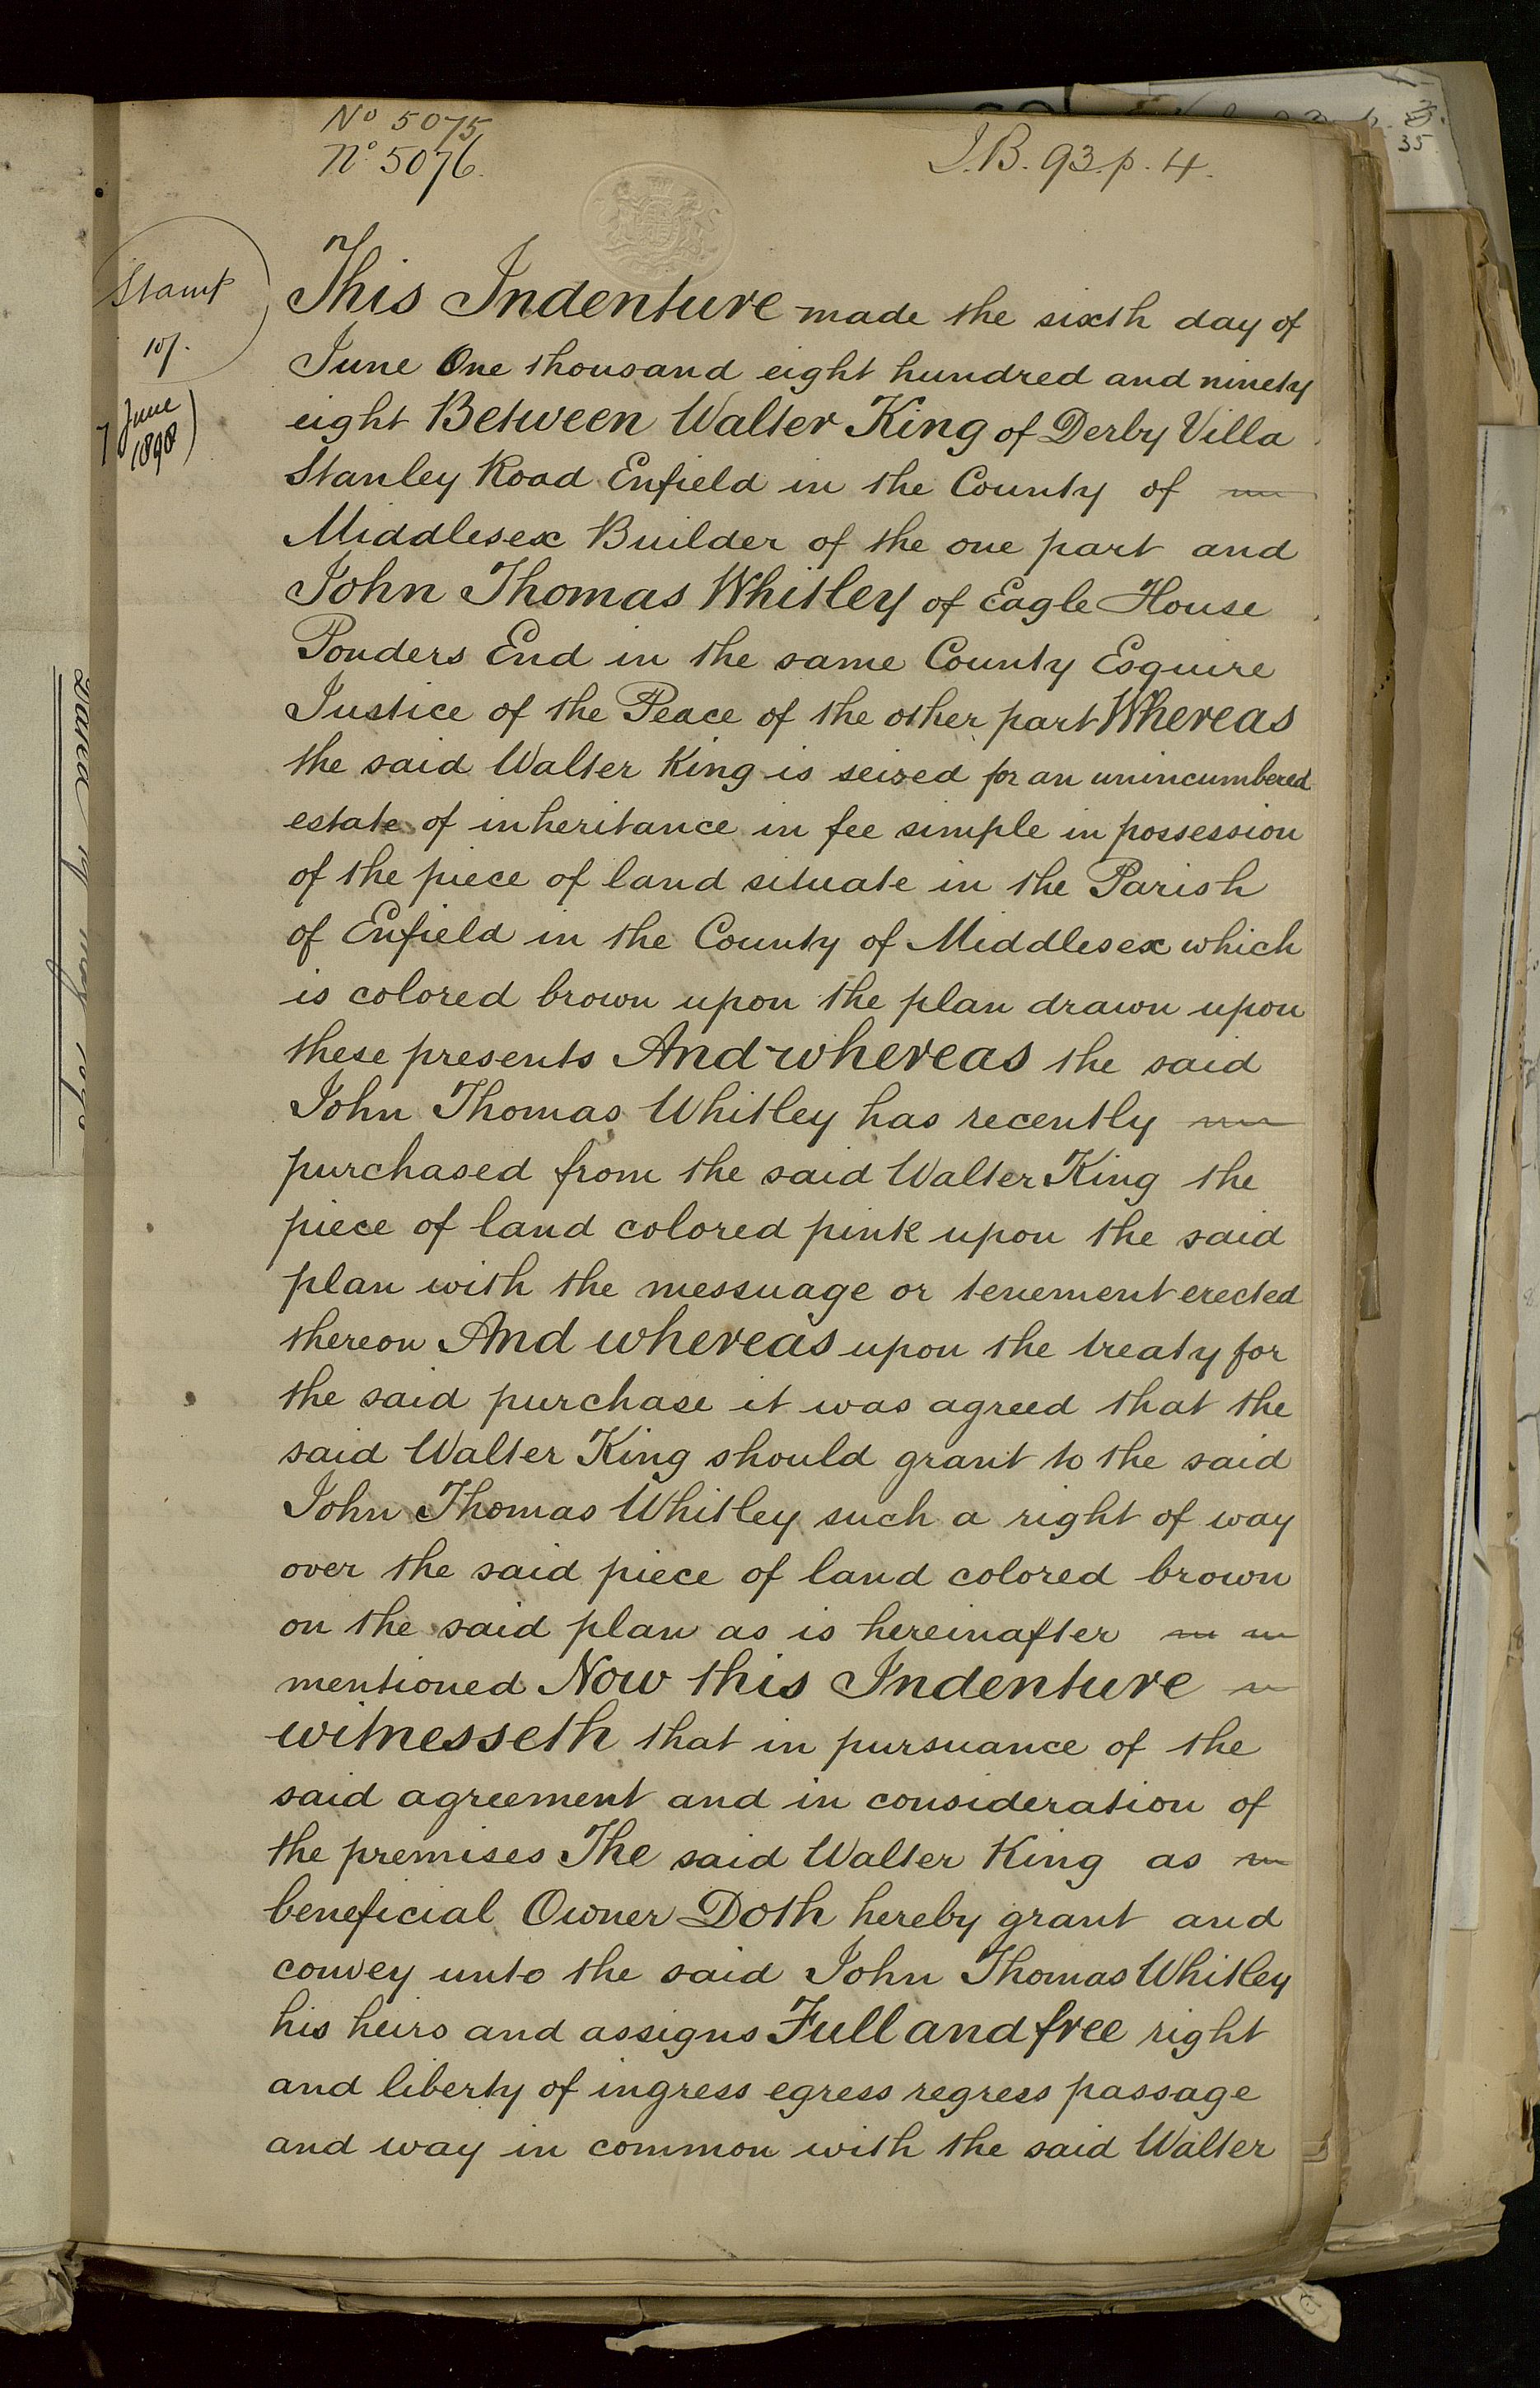 No 5075
No 5076.
I.B. 93. p. 4.
35
Stamp
10/.
7 June
1898
This Indenture made the sixth day of
June One thousand eight hundred and ninety
eight Between Walter King of Derby Villa
Stanley Road Enfield in the County of
Middlesex Builder of the one part and
John Thomas Whitley of Eagle House
Ponders End in the same County Esquire
Justice of the Peace of the other part Whereas
the said Walter King is seized for an unincumbered
estate of inheritance in fee simple in possession
of the piece of land situate in the Parish
of Enfield in the County of Middlesex which
is colored brown upon the plan drawn upon
these presents And whereas the said
John Thomas Whitley has recently
purchased from the said Walter King the
piece of land colored pink upon the said
plan with the messuage or tenement erected
thereon And whereas upon the treaty for
the said purchase it was agreed that the
said Walter King should grant to the said
John Thomas Whitley such a right of way
over the said piece of land colored brown
on the said plan as is hereinafter
mentioned Now this Indenture
witnesseth that in pursuance of the
said agreement and in consideration of
the premises The said Walter King as
beneficial Owner Doth hereby grant and
convey unto the said John Thomas Whitley
his heirs and assigns Full and free right
and liberty of ingress egress regress passage
and way in common with the said Walter